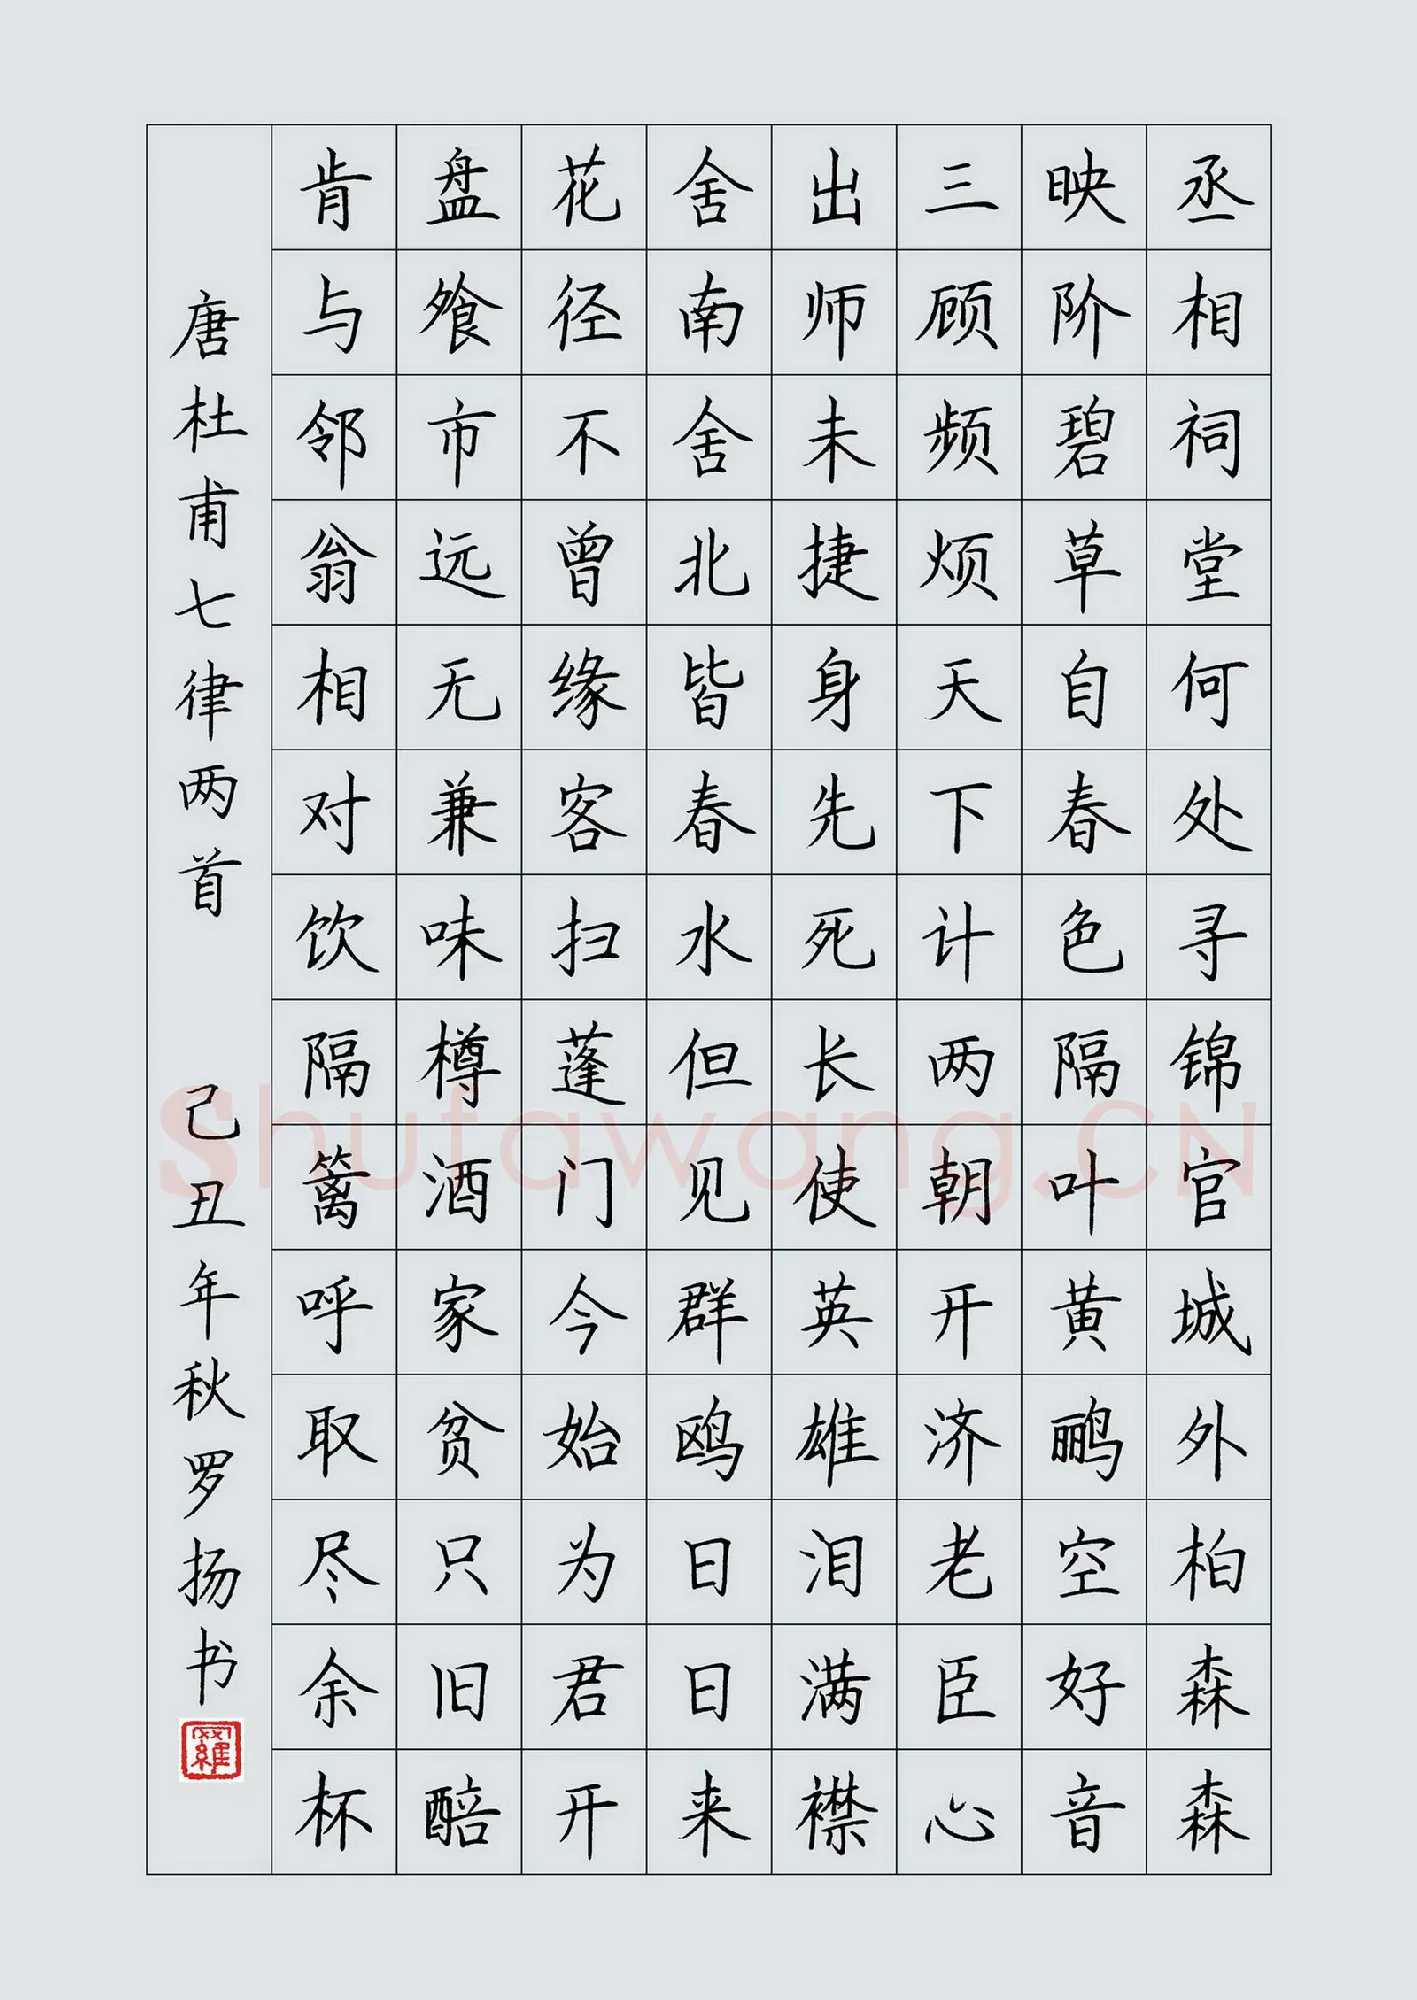 丞相祠堂何处寻锦官城外柏森森
映阶碧草自春色隔叶黄鹂空好音
三顾频烦天下计两朝开济老臣心
出师未捷身先死长使英雄泪满襟
舍南舍北皆春水但见群鸥日日来
花径不曾缘客扫蓬门今始为君开
盘飧市远无兼味樽酒家贫只旧醅
肯与邻翁相对饮隔篱呼取尽余杯
唐杜甫七律两首 己丑年秋罗扬书
羅
Shufawang.CN